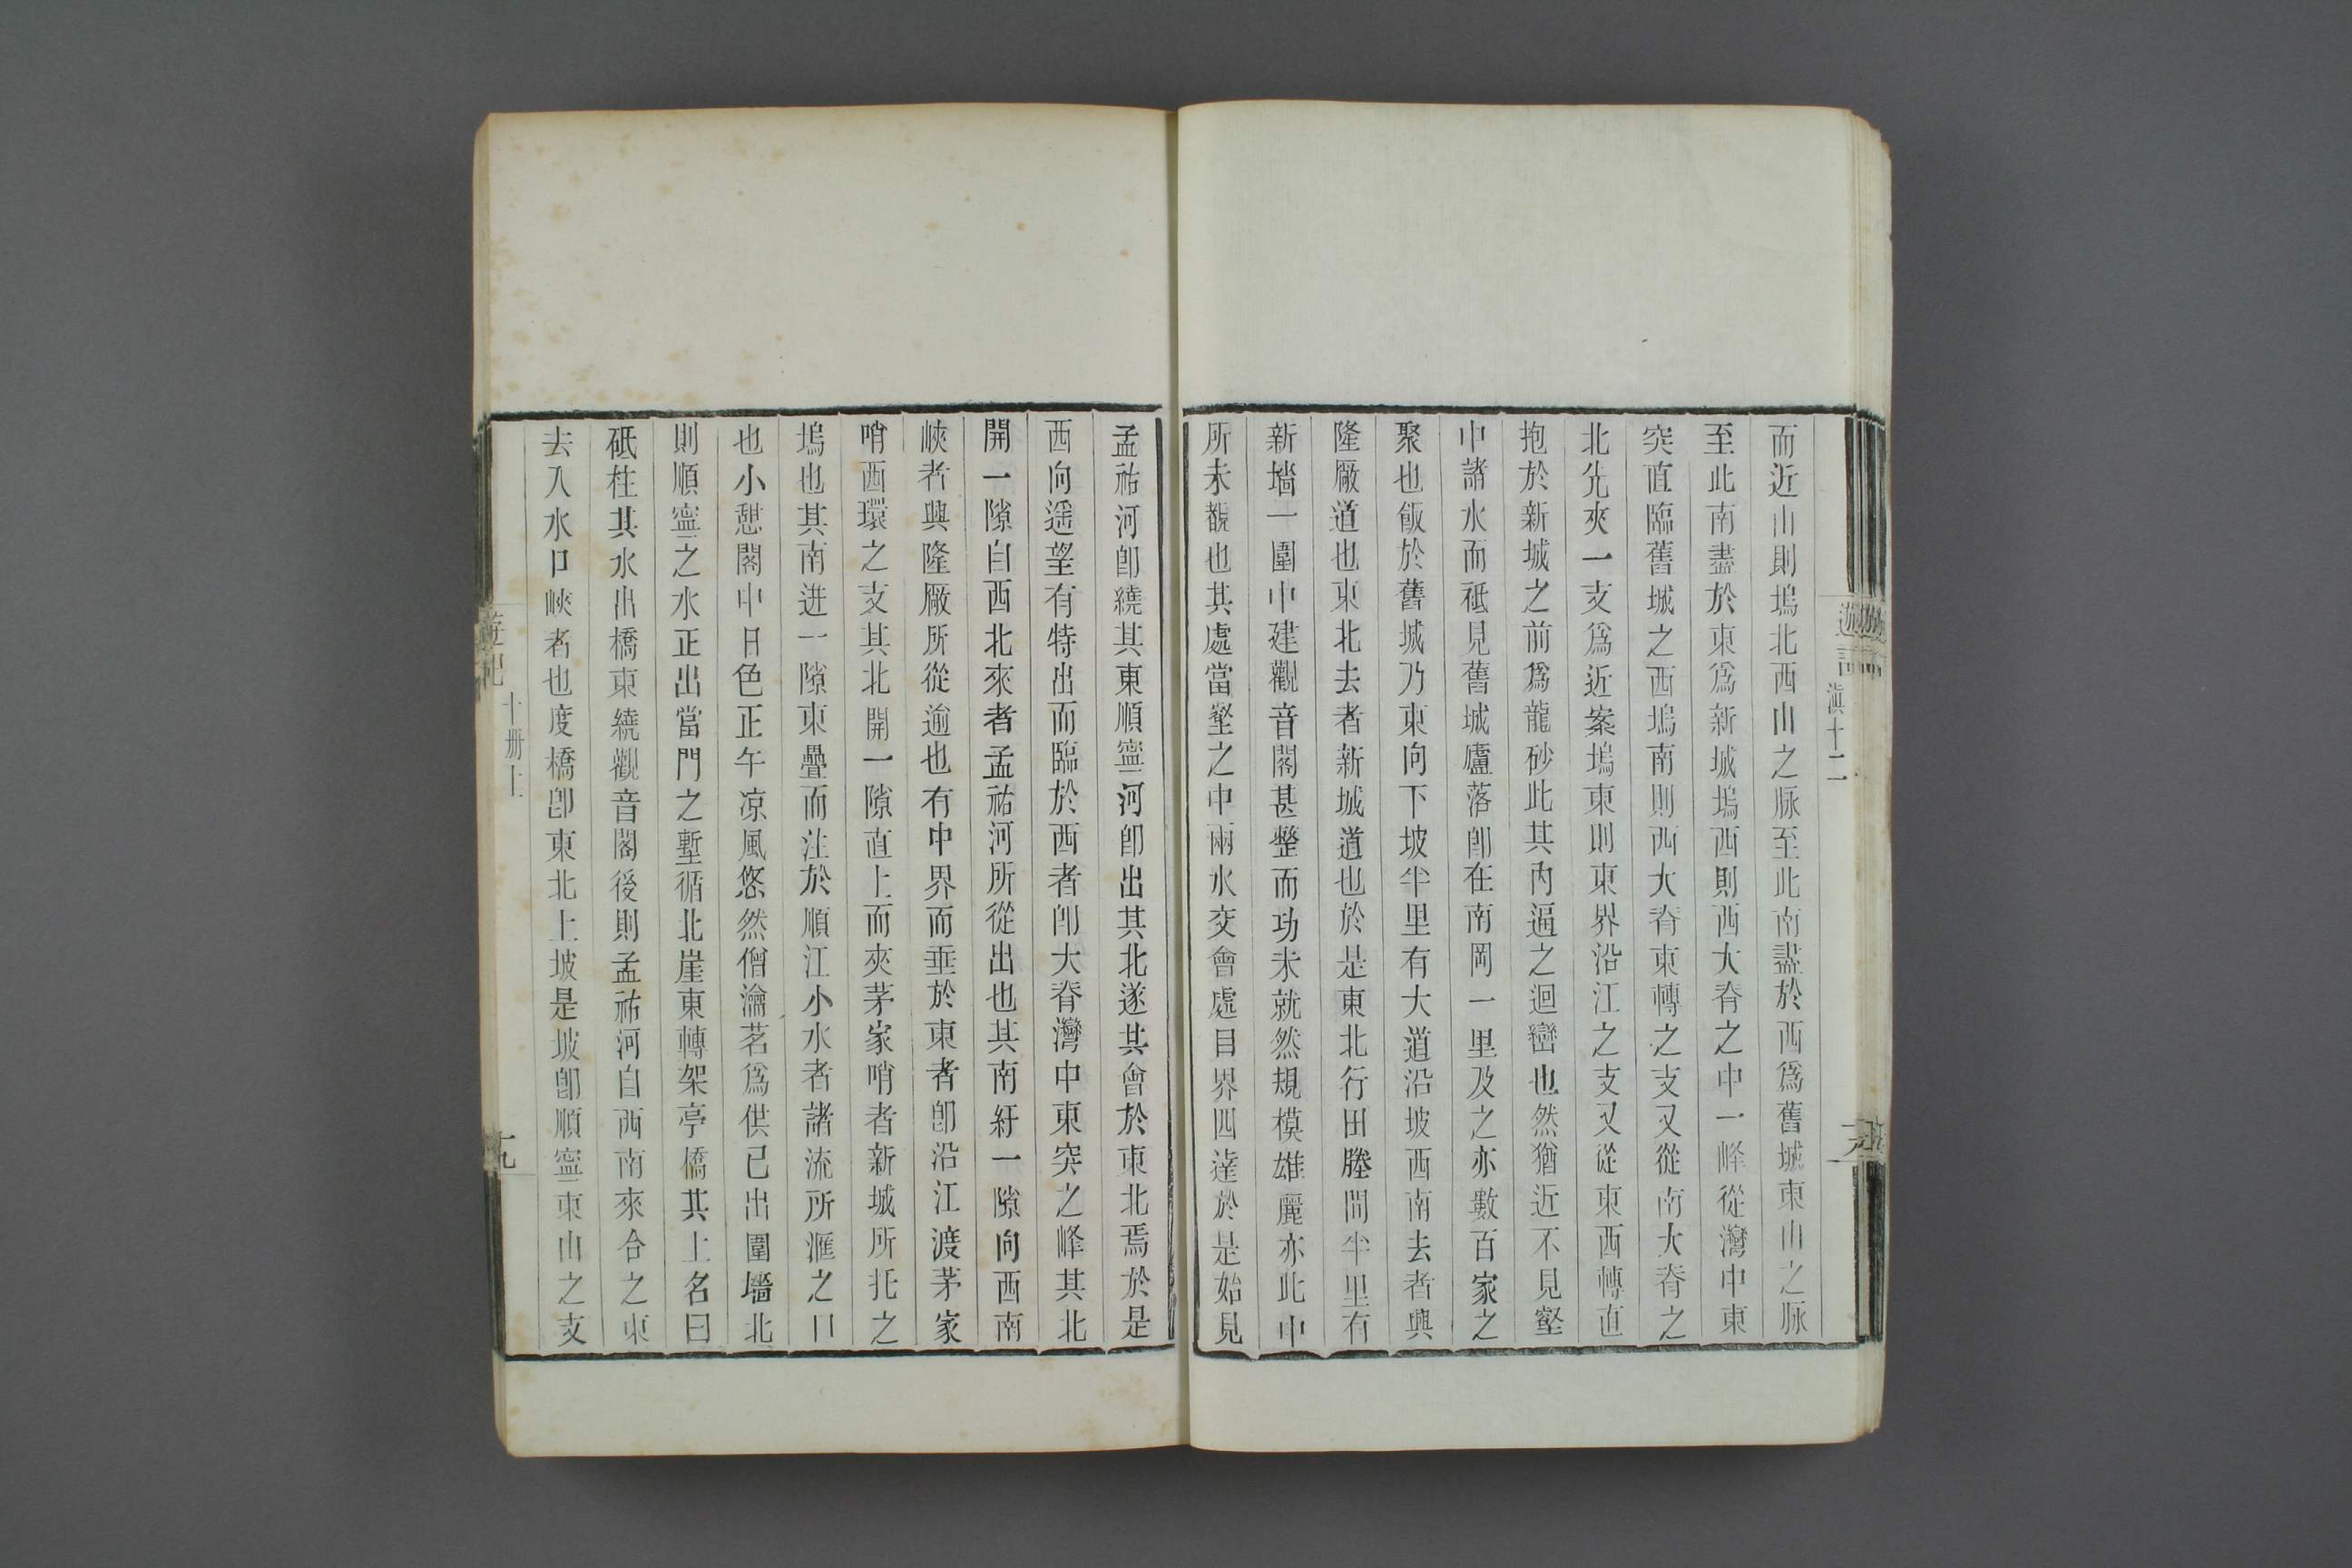 而近山則塢北西山之脉至此南盡於西爲舊城東山之脉
至此南盡於東爲新城塢西則西大脊之中一峰從灣中東
突直臨舊城之西塢南則西大脊東轉之支又從南大脊之
北先夾一支爲近案塢東則東界沿江之支又從東西轉直
抱於新城之前爲龍砂此其內逼之迴巒也然猶近不見壑
中諸水而祗見舊城廬落卽在南岡一里及之亦數百家之
聚也飯於舊城乃東向下坡半里有大道沿坡西南去者興
隆廠道也東北去者新城道也於是東北行田塍間半里有
新墻一圍中建觀音閣甚整而功未就然規模雄麗亦此中
所未覩也其處當壑之中兩水交會處目界四達於是始見
孟祐河卽繞其東順寧河卽出其北遂其會於東北焉於是
西向遥望有特出而臨於西者卽大脊灣中東突之峰其北
開一隙自西北來者孟祐河所從出也其南紆一隙向西南
峽者興隆廠所從逾也有中界而垂於東者卽沿江渡茅家
哨西環之支其北開一隙直上而夾茅家哨者新城所托之
塢也其南迸一隙東疊而注於順江小水者諸流所滙之口
也小憩閣中日色正午凉風悠然僧瀹茗爲供已出圍墻北
則順寧之水正出當門之塹循北崖東轉架亭橋其上名曰
砥柱其水出橋東繞觀音閣後則孟祐河自西南來合之東
去入水口峽者也度橋卽東北上坡是坡卽順寧東山之支
遊記
滇十二
遊記
十册上
十九